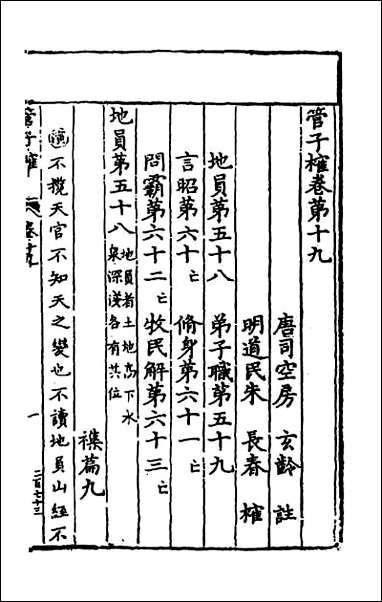 管子榷卷第十九
唐司空房　玄齡　註
明道民朱　長春　榷
地員第五十八　弟子職第五十九
言昭第六十亡　脩身第六十一亡
問霸第六十二亡　牧民解第六十三亡
地員第五十八地員者土地高下水泉深淺各有其位　襍篇九
通不攬天官不知天之變也不讀地員山經不
管子榷　卷十九　一　二百七十三